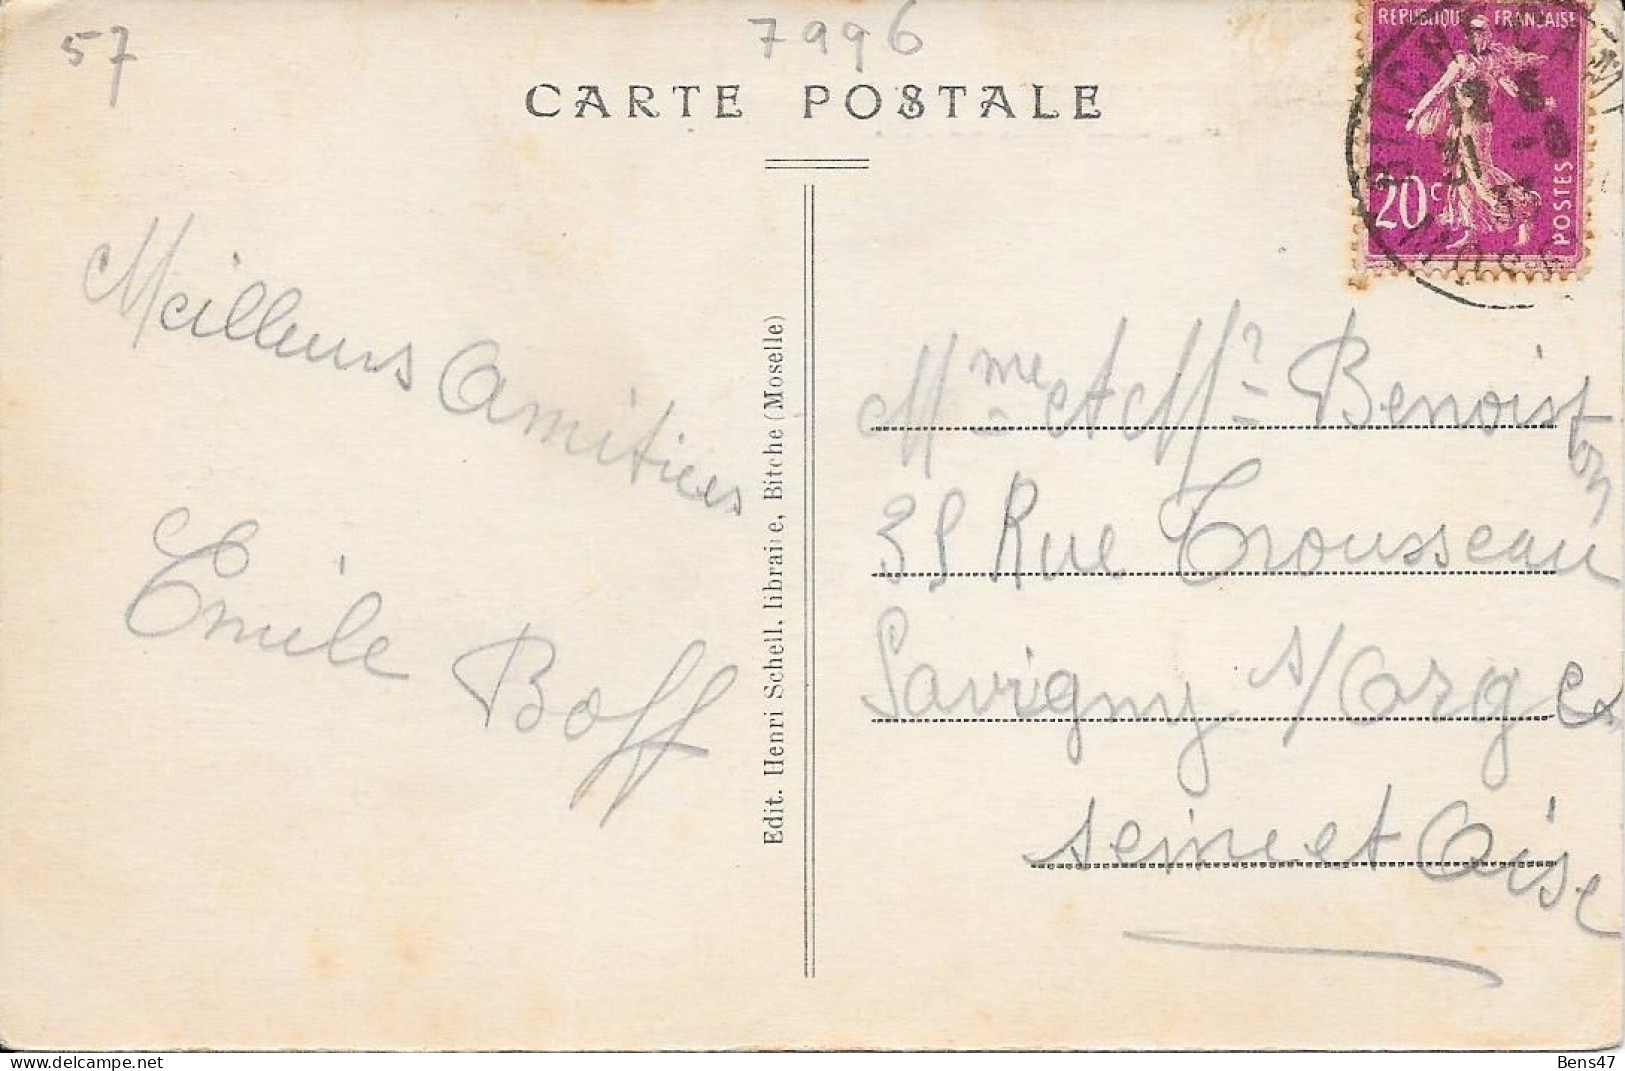 57
7996
CARTE POSTALE
REPUBLIQUE FRANÇAISE
20c
POSTES
BITCHE CAMP
12
21 -8
33
MOSELLE
Meilleurs Amitiées
Emile Boff
Edit. Henri Schell, libraire, Bitche (Moselle)
Mme et Mr Benoist
Rue Trousseau
Savigny s/ Orge
Seine et Oise
delcampe.net
Bens47